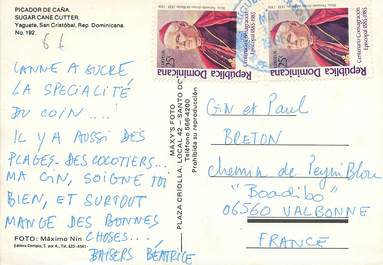 PICADOR DE CAÑA.
SUGAR CANE CUTTER.
Yaguate, San Cristóbal, Rep. Dominicana.
No. 192.
CANNE A SUCRÉ
LA SPECIALITÉ
DU COIN....
IL Y A AUSSI DES
PLAGES. DES COCOTIERS...
MA GIN, SOIGNE TOI
BIEN, ET SURTOUT
MANGE DES BONNES
CHOSES...
BAISERS BÉATRICE
FOTO: Máximo Nin
MAXY'S FOTO
PLAZA CRIOLLA, LOCAL 42 - SANTO DO
Teléfono 566-4200
Prohibida su reproducción
República Dominicana
Centenario Consagración
Episcopal 1885-1985
25¢
República Dominicana
Centenario Consagración
Episcopal 1885-1985
25¢
Gin et Paul
BRETON
Chemin de Peyniblou
"Boadibo"
06560 VALBONNE
FRANCE